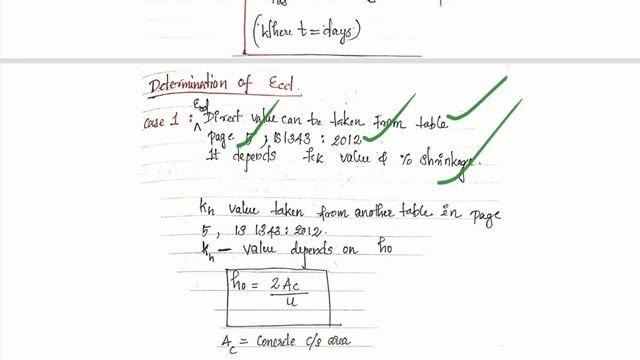 (Where t = days)
Determination of Ecd.
Case 1 : Ecd Direct value can be taken from table
page 5, IS 1343 : 2012
It depends fck value & % shrinkage.
kh value taken from another table in page
5, IS 1343 : 2012.
kh — value depends on ho
ho = 2Ac
u
Ac = Concrete c/s area